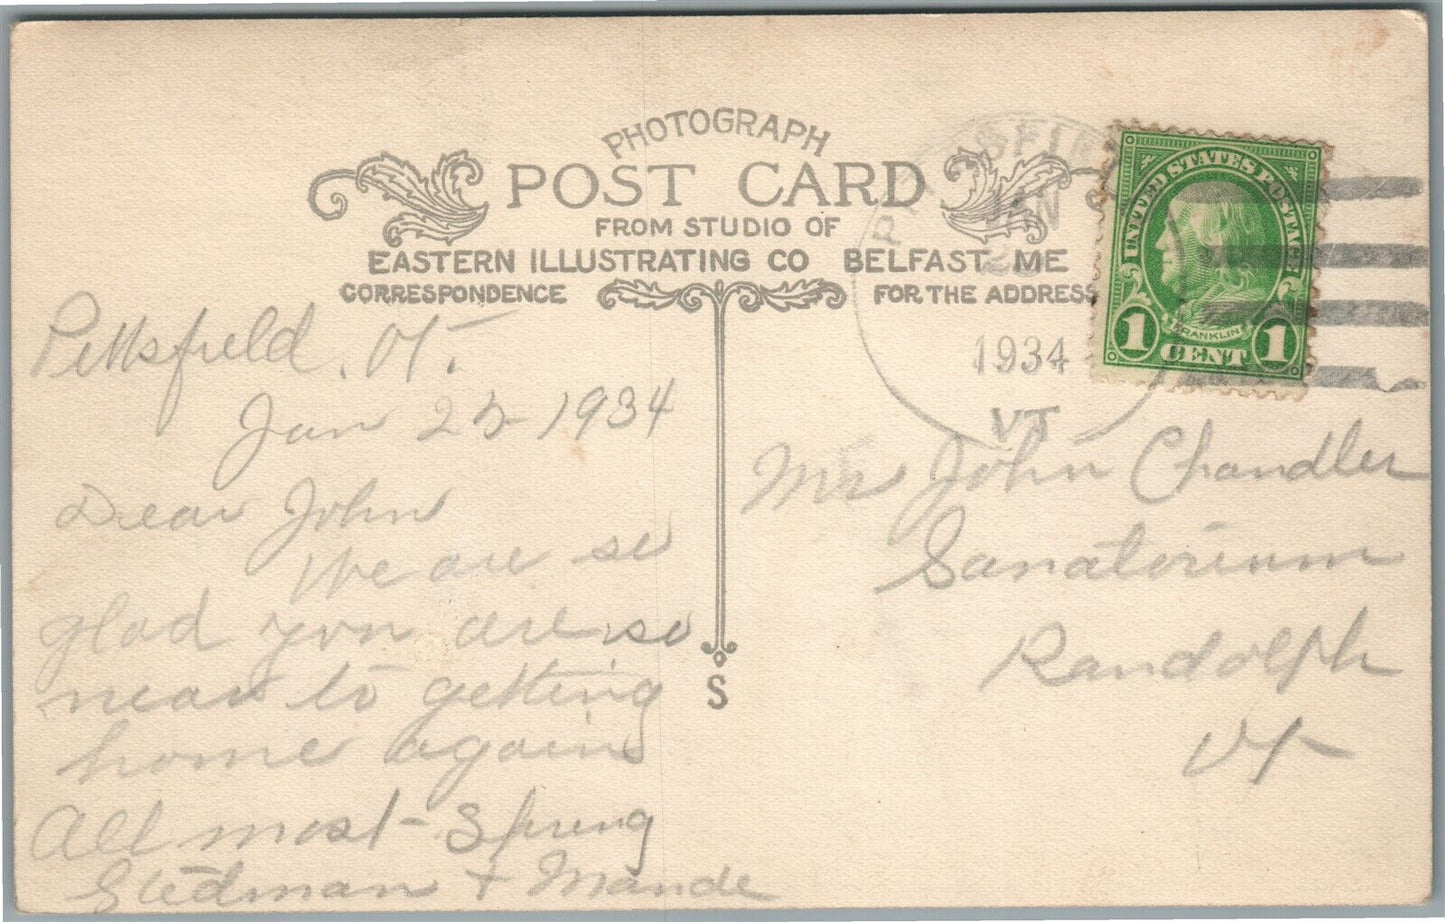 PHOTOGRAPH
POST CARD
FROM STUDIO OF
EASTERN ILLUSTRATING CO BELFAST, ME
CORRESPONDENCE FOR THE ADDRESS
PITTSFIELD
JAN
1934
VT
UNITED STATES POSTAGE
FRANKLIN
1 CENT 1
Pittsfield, Vt.
Jan 25 1934
Dear John
We are so
glad you are so
near to getting
home again
All most - Spring
Stedman + Maude
S
Mr John Chandler
Sanatorium
Randolph
Vt